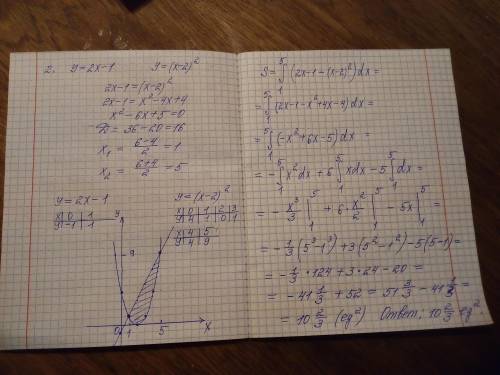 2. y=2x-1 y=(x-2)²
2x-1=(x-2)²
2x-1=x²-4x+4
x²-6x+5=0
D=36-20=16
x₁ = (6-4)/2 = 1
x₂ = (6+4)/2 = 5
y=2x-1 y=(x-2)²
x | 0 | 1
y | -1 | 1
x | 0 | 1 | 2 | 3
y | 4 | 1 | 0 | 1
x | 4 | 5
y | 4 | 9
y
9
0 1 5 x
S=∫₁⁵(2x-1-(x-2)²)dx=
=∫₁⁵(2x-1-x²+4x-4)dx=
=∫₁⁵(-x²+6x-5)dx=
=-∫₁⁵x²dx+6∫₁⁵xdx-5∫₁⁵dx=
=-x³/3|₁⁵+6·x²/2|₁⁵-5x|₁⁵=
=-1/3(5³-1³)+3(5²-1²)-5(5-1)=
=-1/3·124+3·24-20=
=-41 1/3+52=51 3/3-41 1/3=
=10 2/3 (ед²) Ответ: 10 2/3 ед²